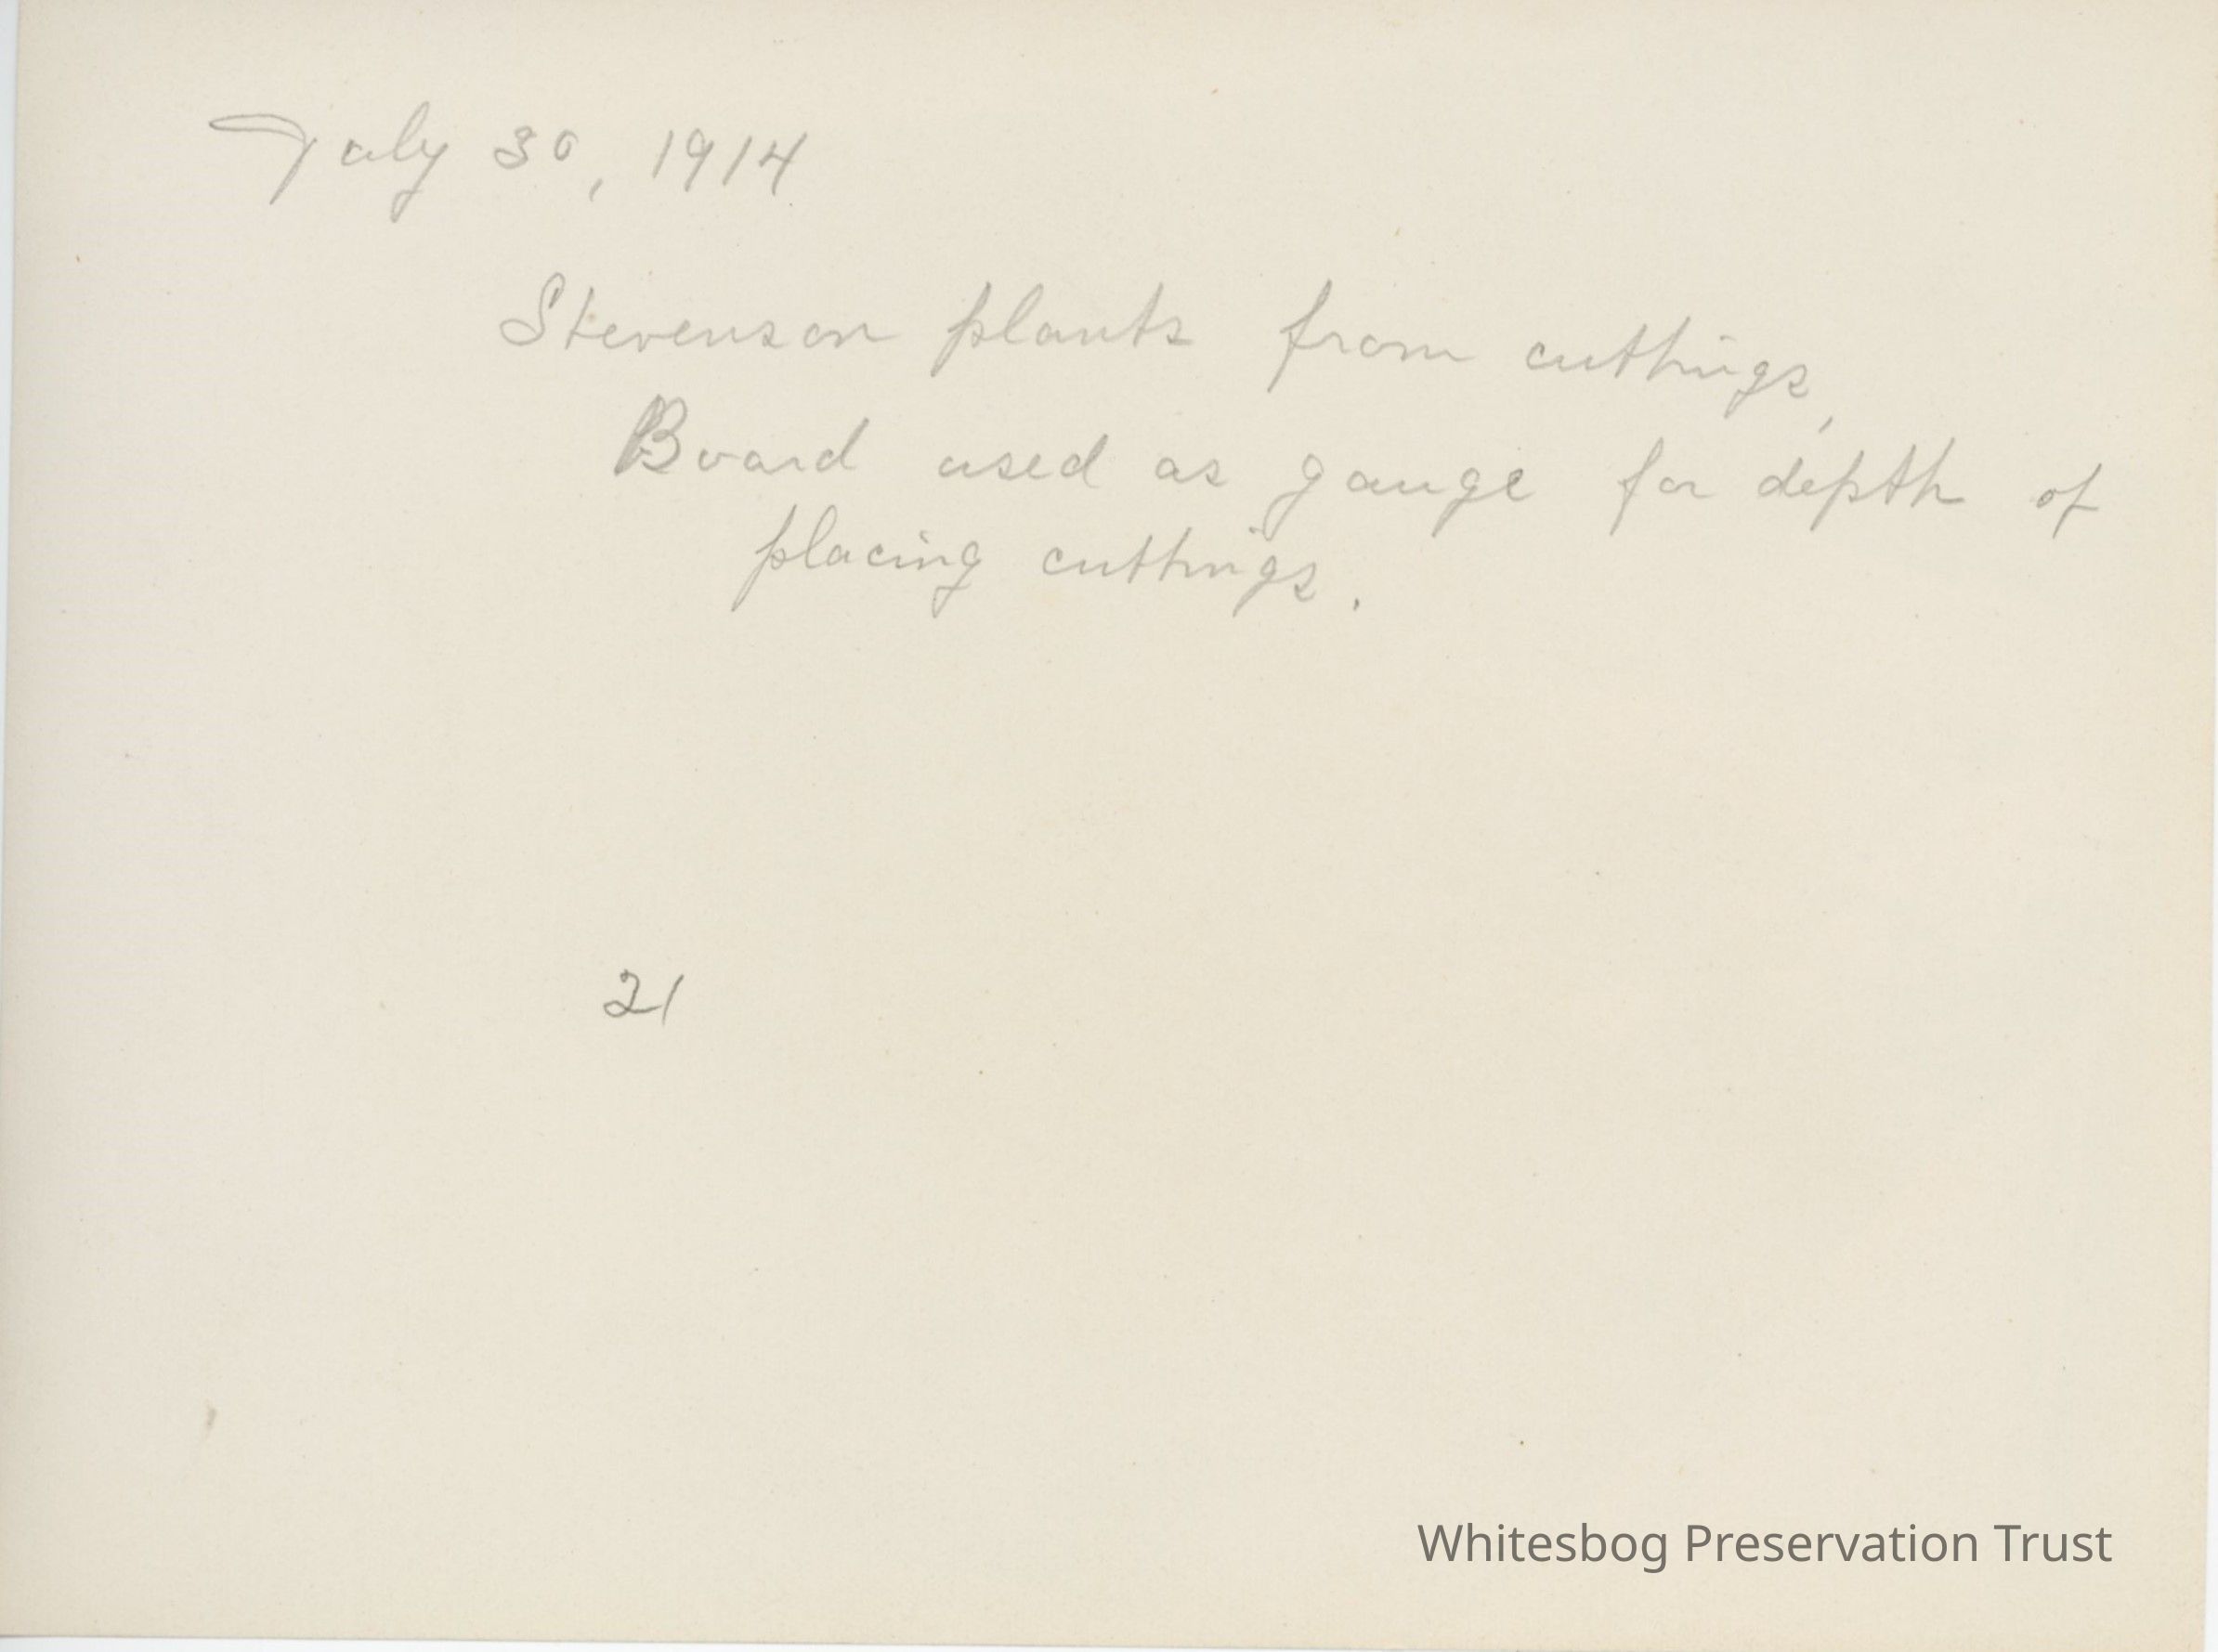 July 30, 1914
Stevenson plants from cuttings,
Board used as gauge for depth of
placing cuttings.
21
Whitesbog Preservation Trust